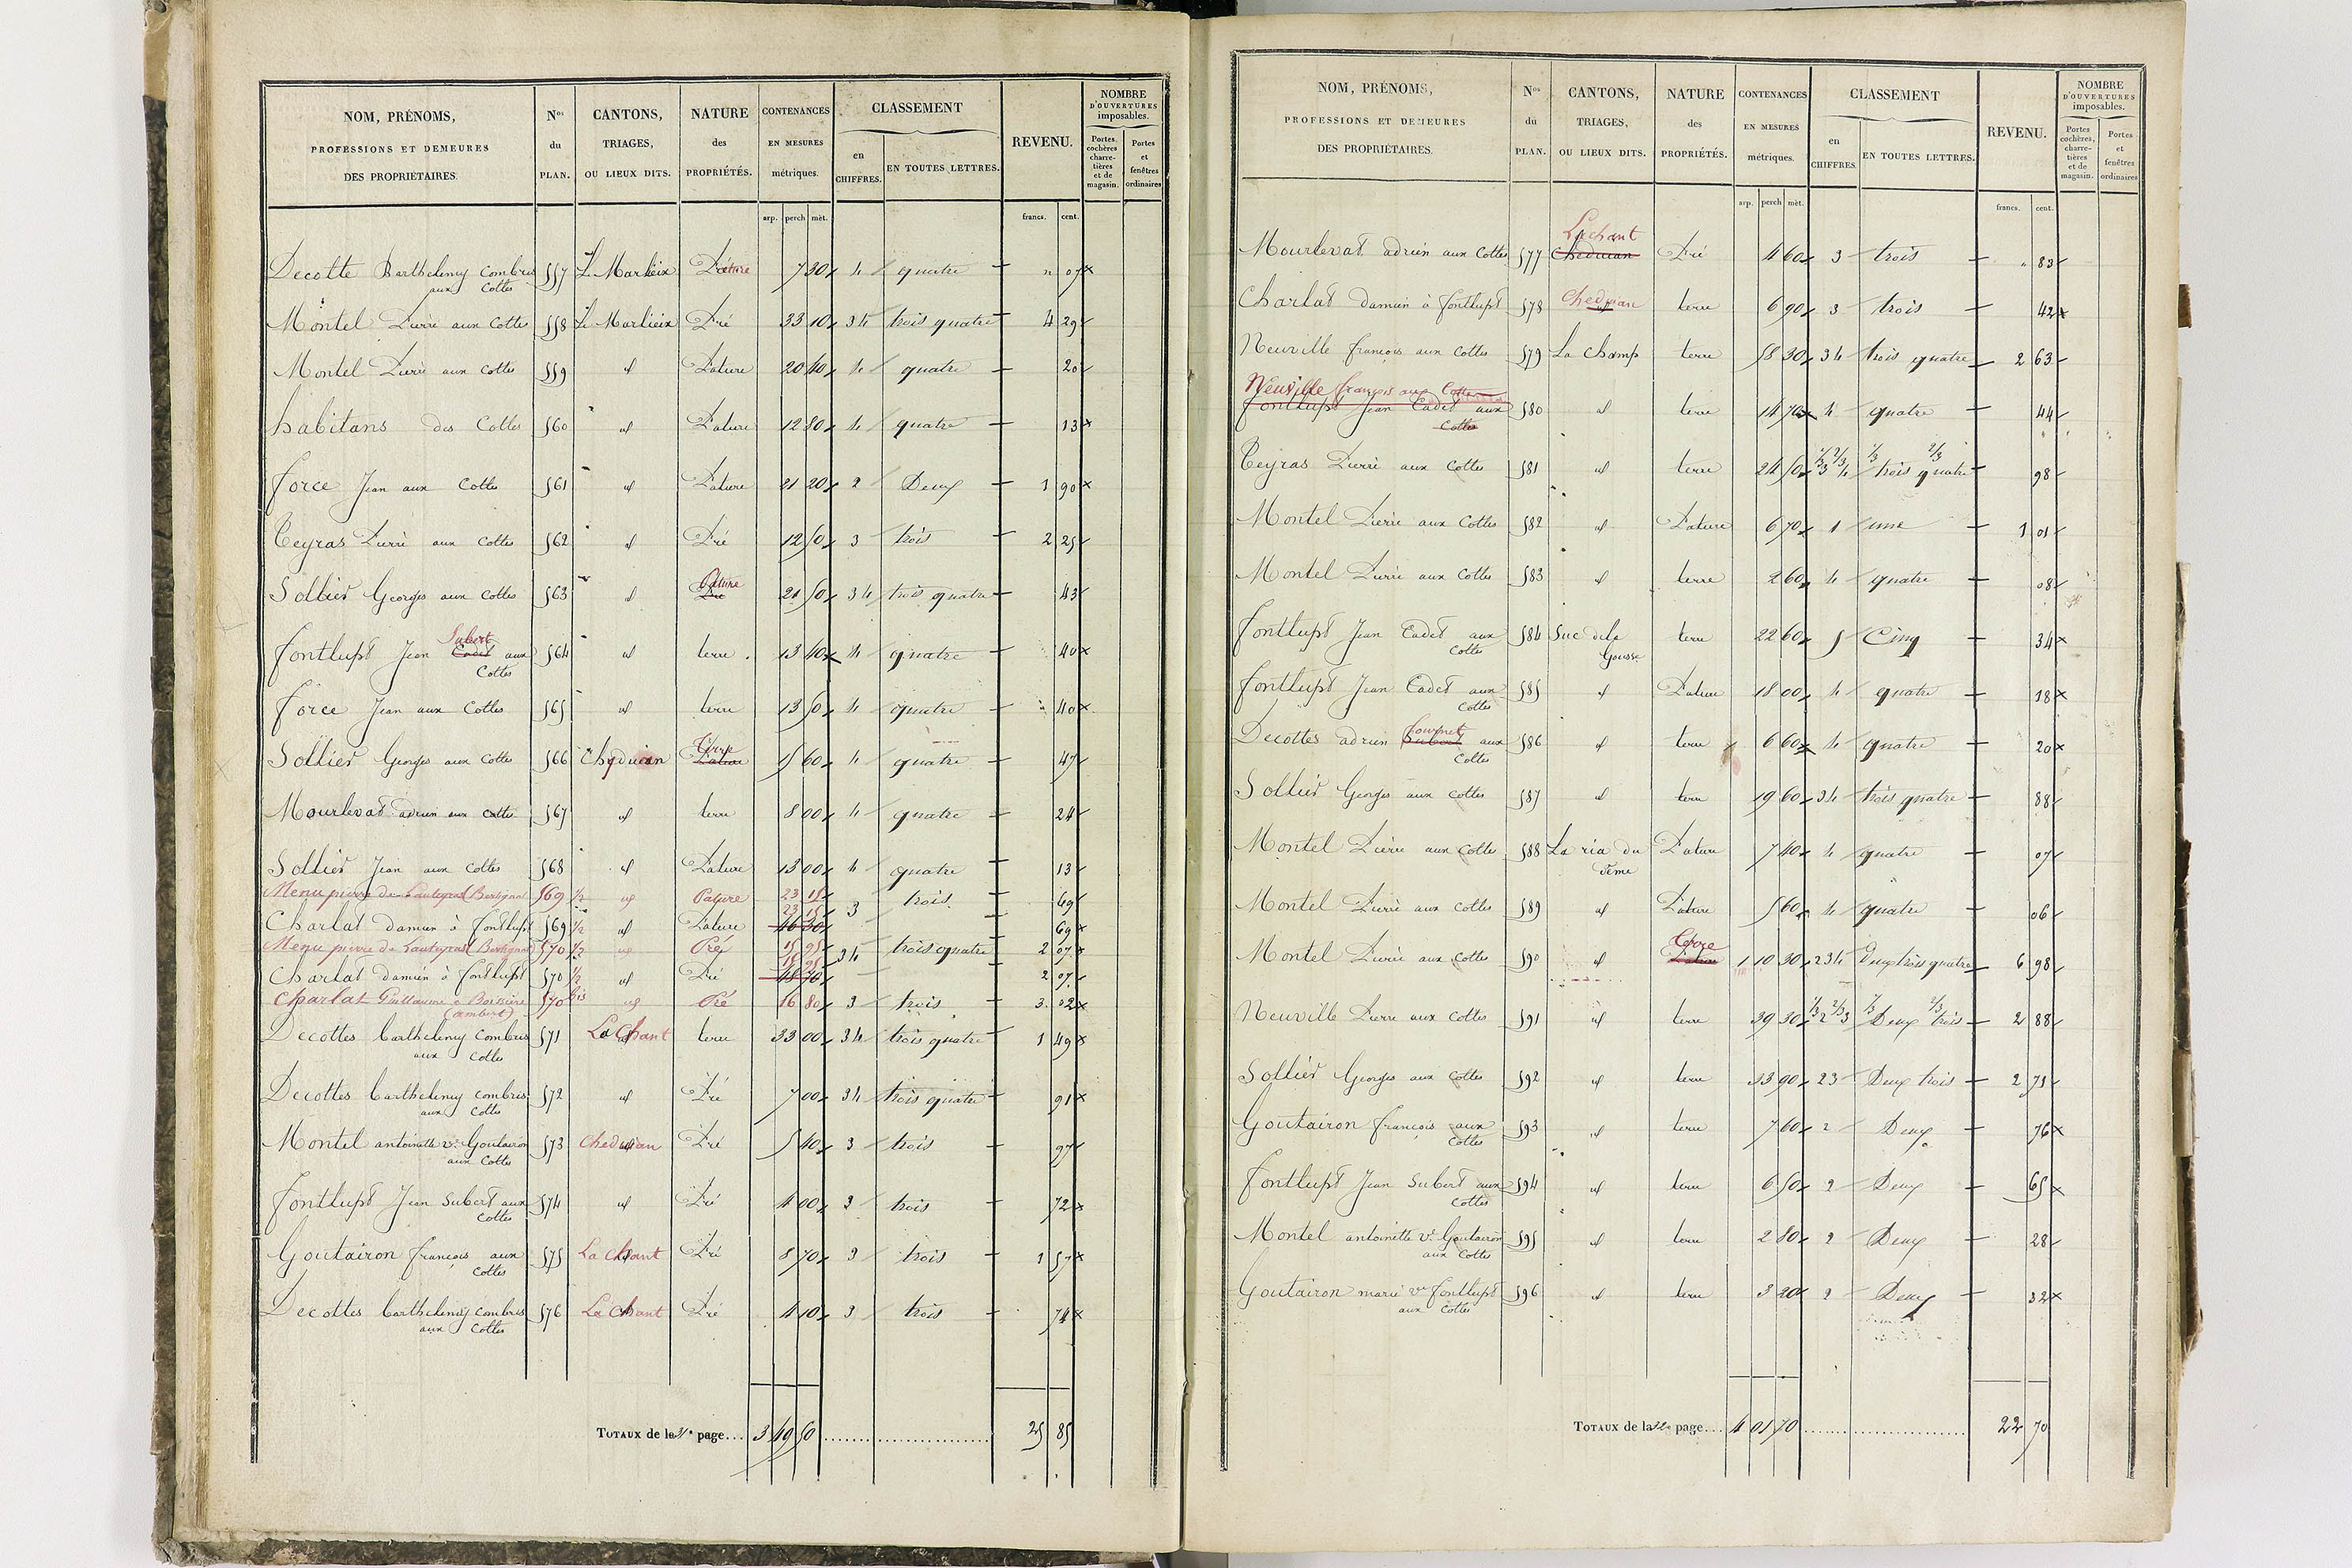 NOM, PRÉNOMS, PROFESSIONS ET DEMEURES DES PROPRIÉTAIRES. Nos du PLAN. CANTONS, TRIAGES, OU LIEUX DITS. NATURE des PROPRIÉTÉS. CONTENANCES EN MESURES métriques. CLASSEMENT en CHIFFRES. EN TOUTES LETTRES. REVENU. NOMBRE D'OUVERTURES imposables. Portes cochères, charretières et de magasin. Portes et fenêtres ordinaires
arp. perch mèt. francs. cent.
Decotte Barthelemy Combris aux Cottes 557 Le Marlieix Pature 7 30 4 quatre " 07
Montel Pierre aux Cottes 558 Le Marlieix Pré 33 10 3 4 trois quatre 4 29
Montel Pierre aux Cottes 559 id Pature 20 40 4 quatre 20
habitans des Cottes 560 id Pature 12 80 4 quatre 13
force Jean aux Cottes 561 id Pature 21 20 2 Deux 1 90
Teyras Pierre aux Cottes 562 id Pré 12 50 3 trois 2 25
Sollier Georges aux Cottes 563 id Pature Pré 21 50 3 4 trois quatre 43
fontlupt Jean Subert Cadet aux Cottes 564 id terre 13 40 4 quatre 40
force Jean aux Cottes 565 id terre 13 50 4 quatre 40
Sollier Georges aux Cottes 566 Cheducan Terre Pature 15 60 4 quatre 47
Mourlevat adrien aux Cottes 567 id terre 8 00 4 quatre 24
Sollier Jean aux Cottes 568 id Pature 13 00 4 quatre 13
Menu pierre de (Bertignat) 569 1/2 id Pature 23 15 trois 69
Charlat damien à fontlupt 569 1/2 id Pature 23 15 46 30 3 69
Menu pierre de (Bertignat) 570 1/2 id Pré 15 95 trois quatre 2 07
Charlat damien à fontlupt 570 1/2 id Pré 15 95 3 4 2 07
Charlat Guillaume à Boissière (ambert) 570 bis id Pré 16 80 3 trois 3 02
Decottes barthelemy Combris aux Cottes 571 La Chant terre 33 00 3 4 trois quatre 1 49
Decottes barthelemy combris aux Cottes 572 id Pré 7 00 3 4 trois quatre 91
Montel antoinette ve Goutairon aux Cottes 573 Cheducan Pré 5 40 3 trois 97
fontlupt Jean Subert aux Cottes 574 id Pré 4 00 3 trois 72
Goutairon françois aux Cottes 575 La Chant Pré 8 70 3 trois 1 57
Decottes barthelemy combris aux Cottes 576 La Chant Pré 4 10 3 trois 74
TOTAUX de la 31e page.... 3 49 50 25 85
NOM, PRÉNOMS, PROFESSIONS ET DEMEURES DES PROPRIÉTAIRES. Nos du PLAN. CANTONS, TRIAGES, OU LIEUX DITS. NATURE des PROPRIÉTÉS. CONTENANCES EN MESURES métriques. CLASSEMENT en CHIFFRES. EN TOUTES LETTRES. REVENU. NOMBRE D'OUVERTURES imposables. Portes cochères, charretières et de magasin. Portes et fenêtres ordinaires
arp. perch mèt. francs. cent.
Mourlevat adrien aux Cottes 577 La chant Cheducan Pré 4 60 3 trois " 83
Charlat damien à fontlupt 578 Cheducan terre 6 90 3 trois 42
Neuville françois aux Cottes 579 La Champ terre 58 30 3 4 trois quatre 2 63
Neuville françois aux Cottes
fontlupt Jean Cadet aux Cottes 580 id terre 14 70 4 quatre 44
Teyras Pierre aux Cottes 581 id terre 24 50 1/3 2/3 3 4 1/3 2/3 trois quatre 98
Montel Pierre aux Cottes 582 id Pature 6 70 1 une 1 01
Montel Pierre aux Cottes 583 id terre 2 60 4 quatre 08
fontlupt Jean Cadet aux Cottes 584 Suc de la Gousse terre 22 60 5 Cinq 34
fontlupt Jean Cadet aux Cottes 585 id Pature 18 00 4 quatre 18
Decottes adrien Cournet Subert aux Cottes 586 id terre 6 60 4 quatre 20
Sollier Georges aux Cottes 587 id terre 19 60 3 4 trois quatre 88
Montel Pierre aux Cottes 588 La ria du Pature 7 40 4 quatre 07
Montel Pierre aux Cottes 589 id Pature 5 60 4 quatre 06
Montel Pierre aux Cottes 590 id Terre Pature 1 10 30 2 3 4 Deux trois quatre 6 98
Neuville Pierre aux Cottes 591 id terre 39 30 1/3 2/3 2 3 1/3 2/3 Deux trois 2 88
Sollier Georges aux Cottes 592 id terre 33 90 2 3 Deux trois 2 71
Goutairon françois aux Cottes 593 id terre 7 60 2 Deux 76
fontlupt Jean Subert aux Cottes 594 id terre 6 50 2 Deux 65
Montel antoinette ve Goutairon aux Cottes 595 id terre 2 80 2 Deux 28
Goutairon marie ve fontlupt aux Cottes 596 id terre 3 20 2 Deux 32
TOTAUX de la 32e page.... 4 01 70 22 70